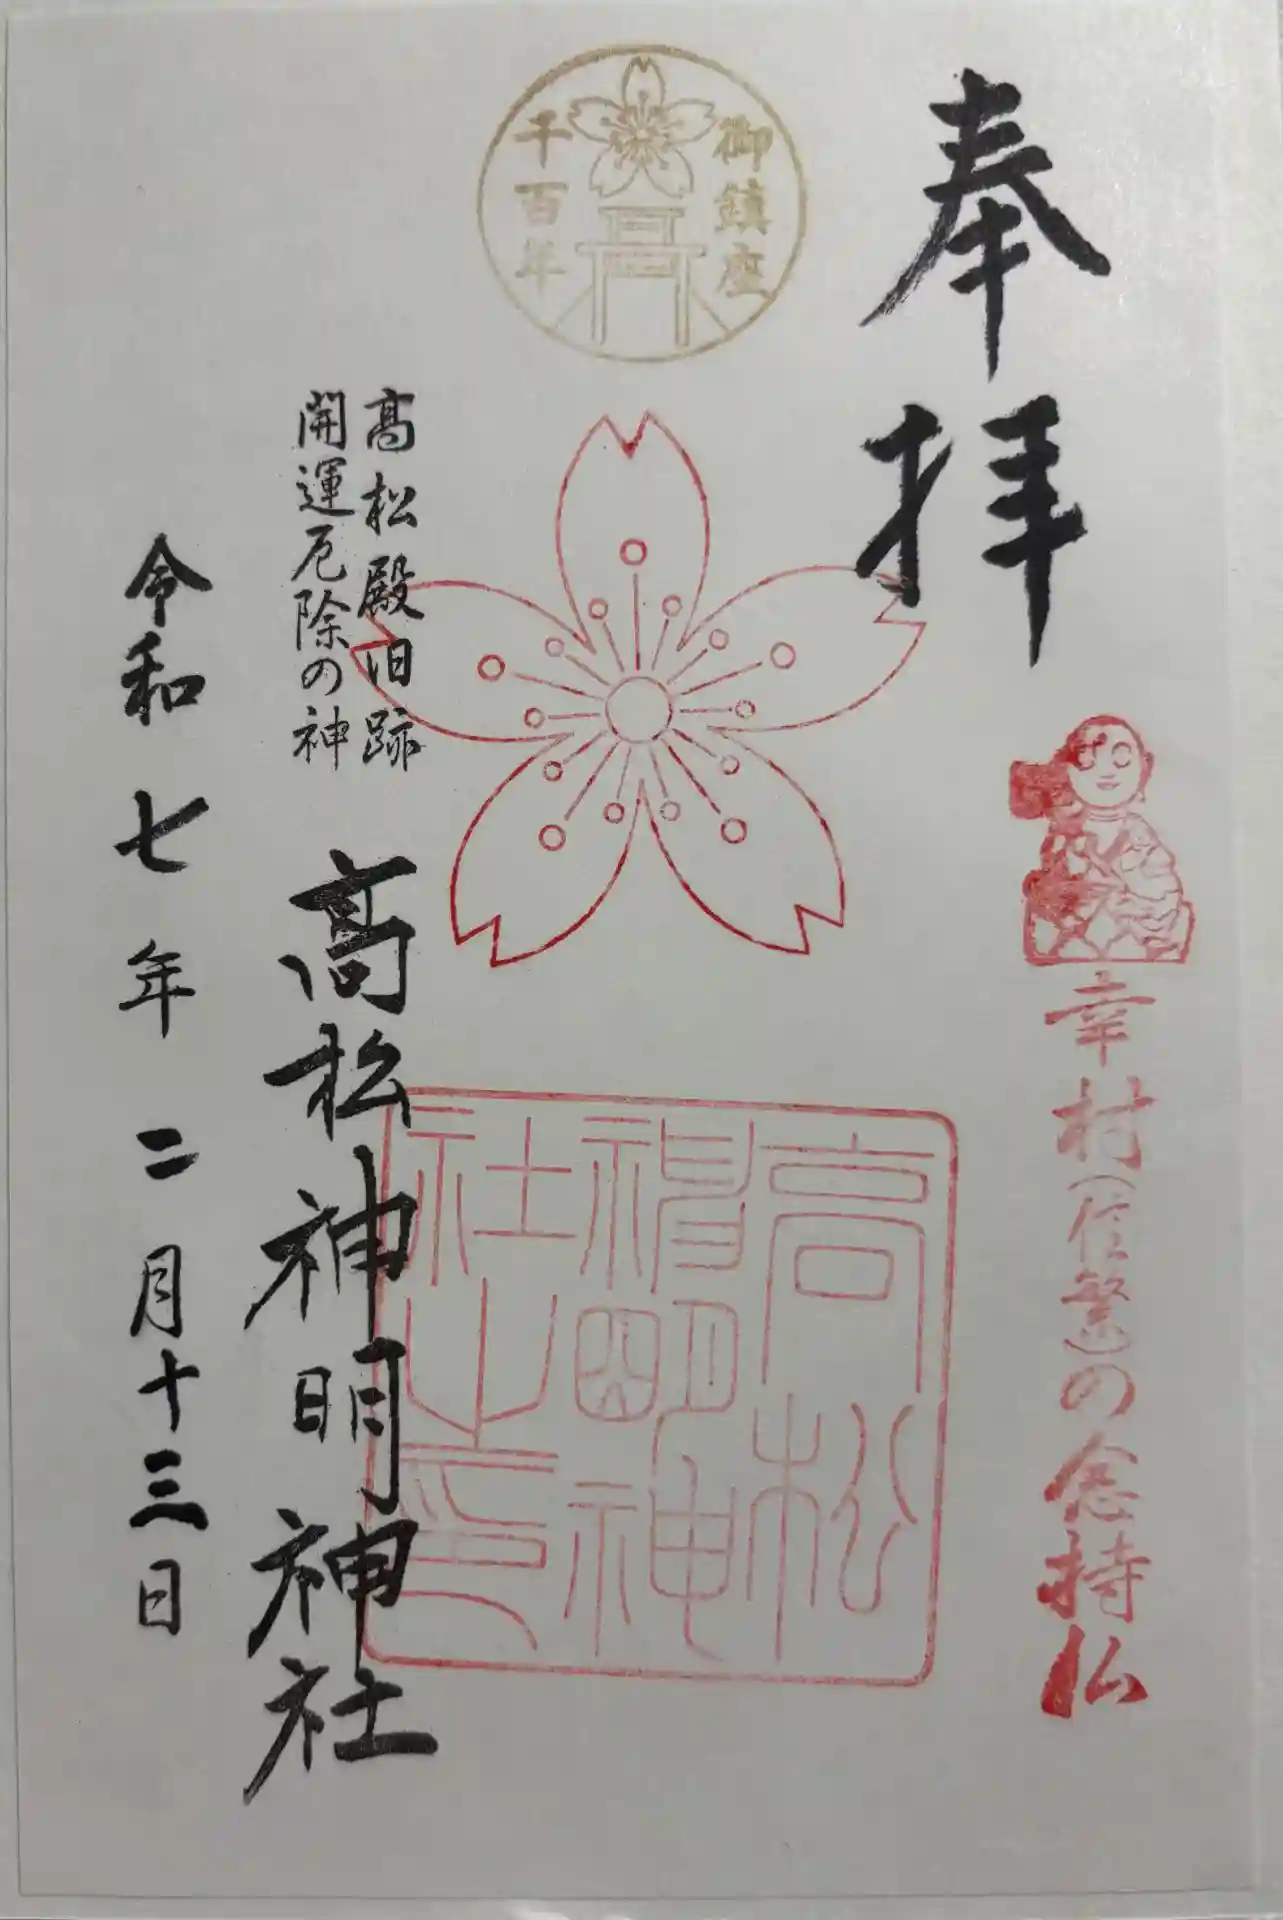 奉拝
幸村(信繁)の念持仏
御鎮座
千百年
高松
神明神
社之印
高松殿旧跡
開運厄除の神
高松神明神社
令和七年二月十三日